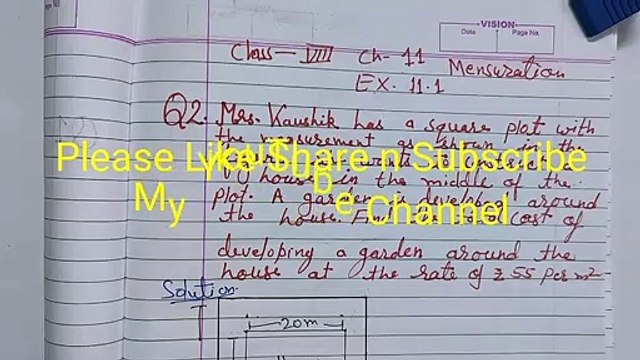 VISION
Date
Page No.
Class - VIII Ch- 11 Mensuration
EX. 11.1
Q2. Mrs. Kaushik has a square plot with
the measurement as shown in the
house in the middle of the
plot. A garden is developed around
the house. Find the cost of
developing a garden around the
house at the rate of ₹ 55 per m²
Please Like Share n Subscribe
My YouTube Channel
Solution
20m